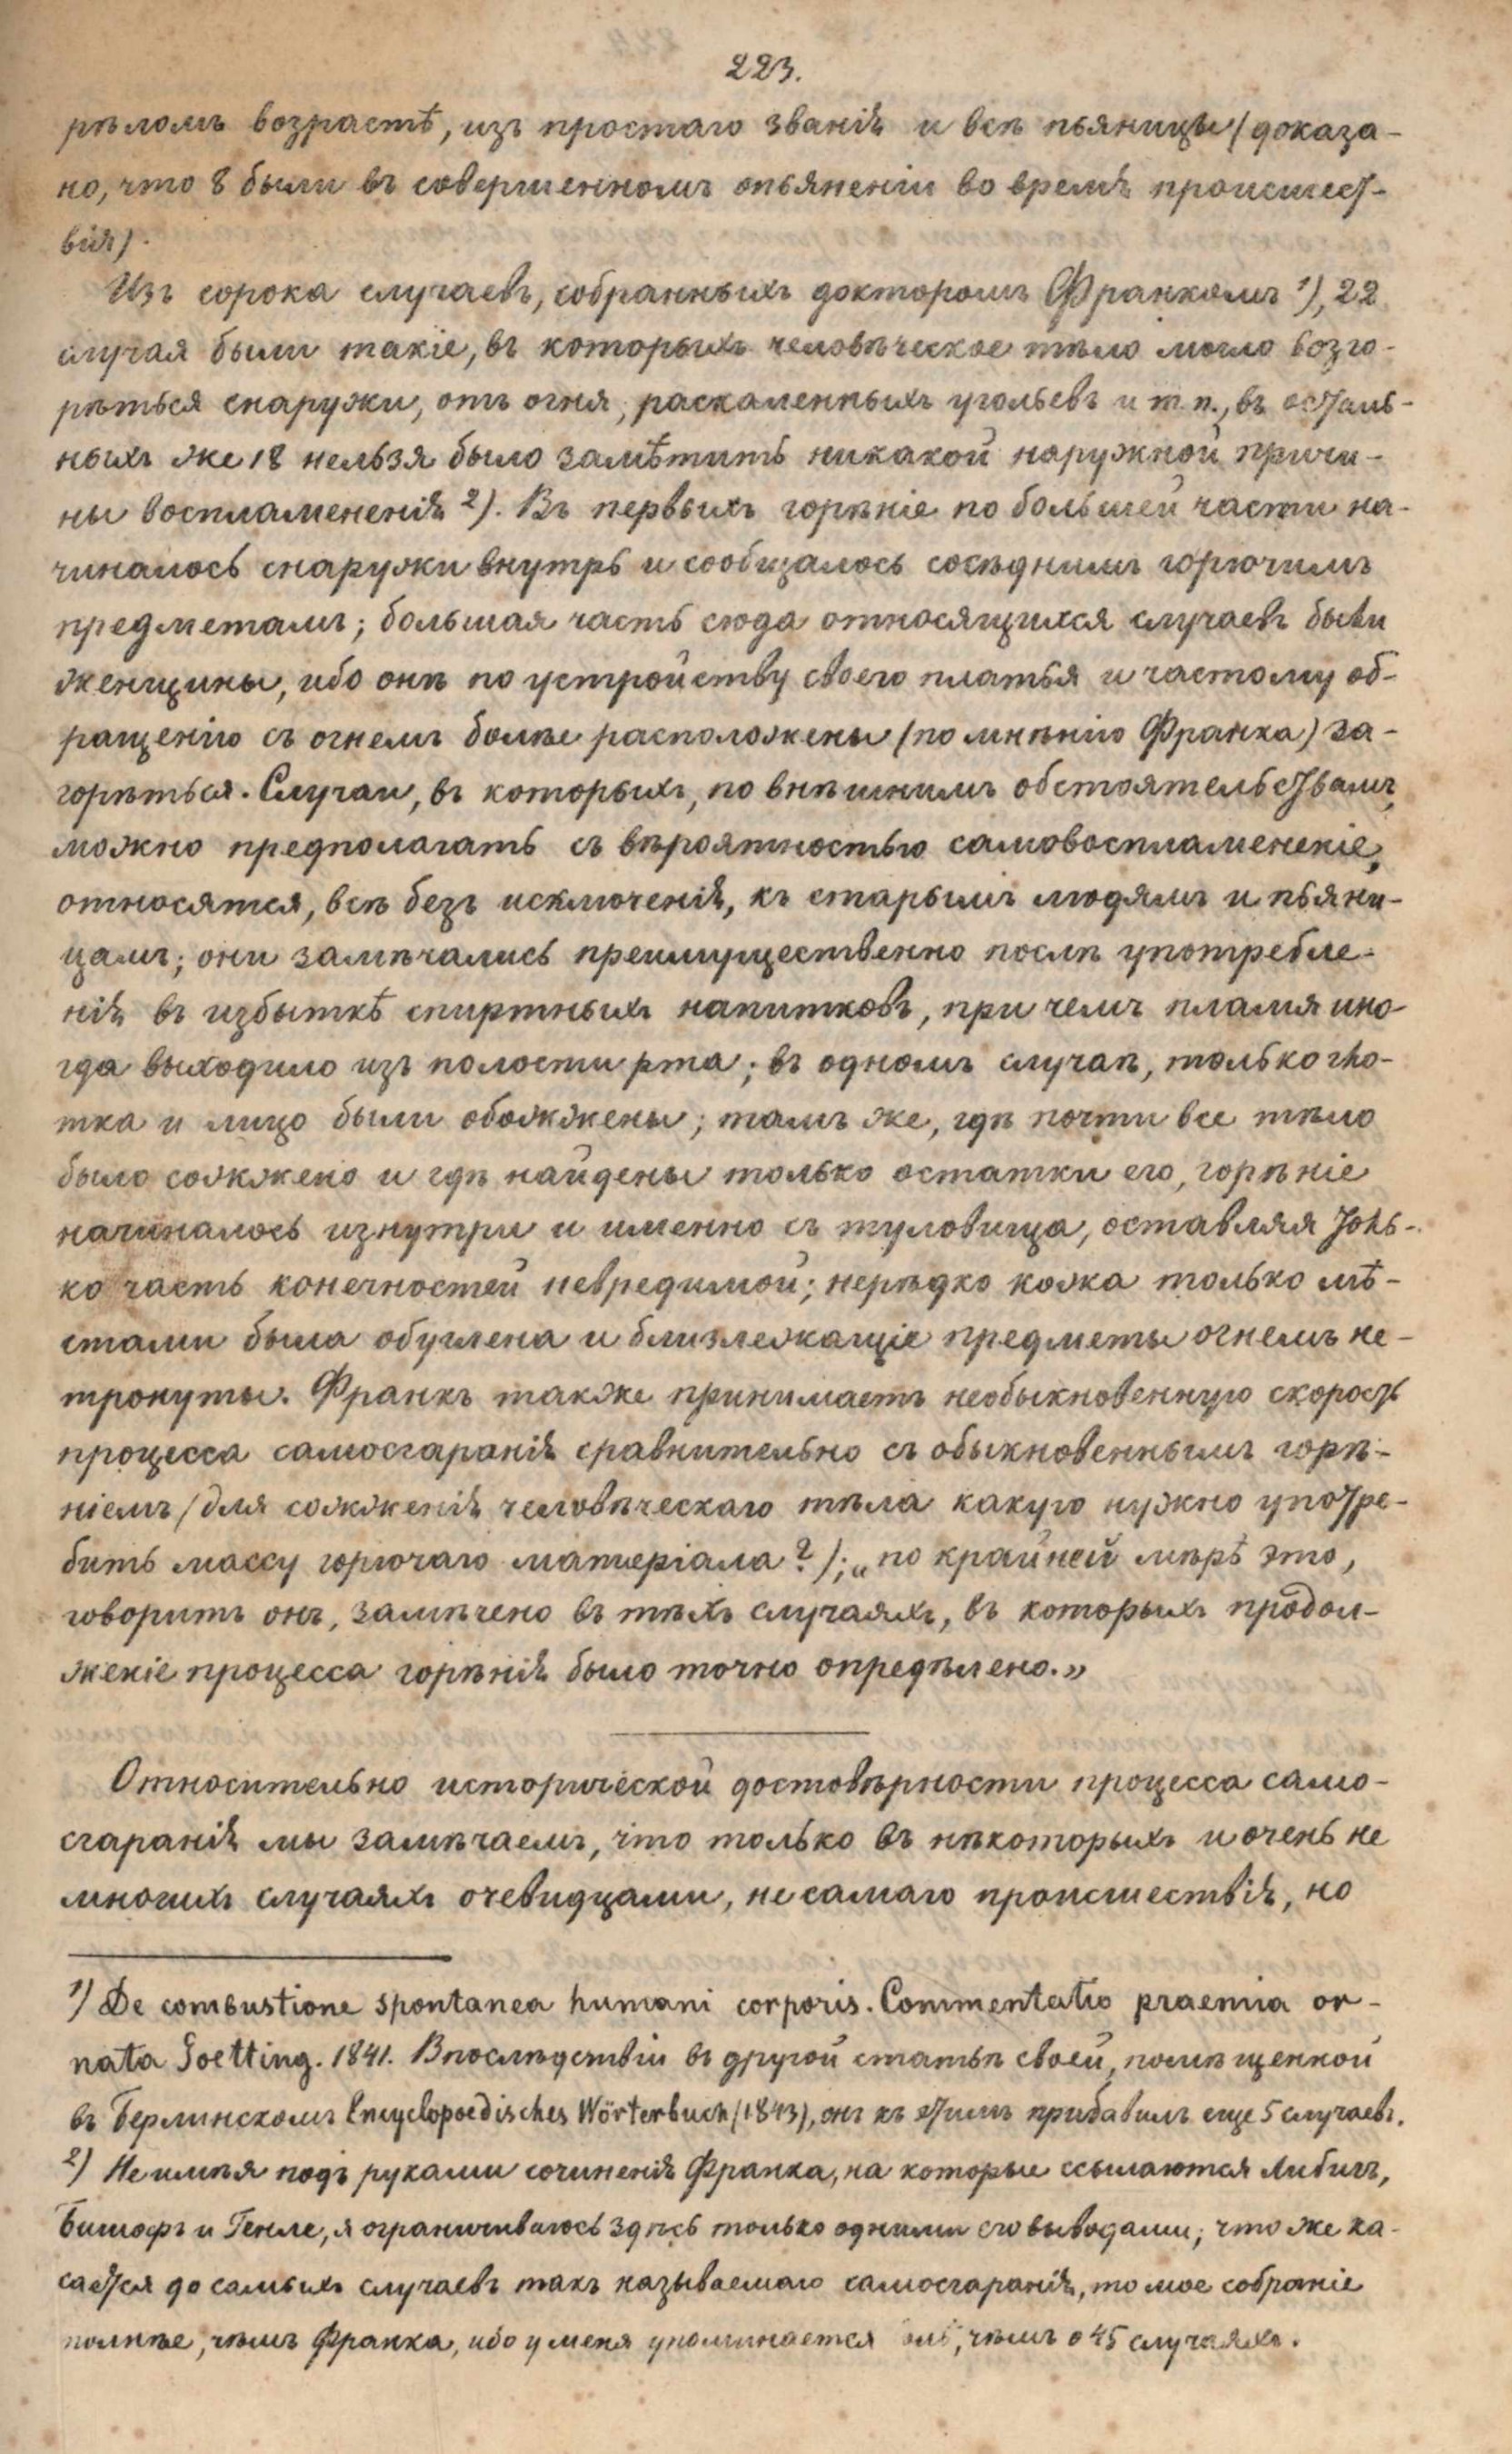 223.
рѣломъ возрастѣ, изъ простаго званія и всѣ пьяницы (доказа-
но, что 8 были въ совершенномъ опьяненіи во время происшест-
вія).
Изъ сорока случаевъ, собранныхъ докторомъ Франкомъ ¹), 22
случая были такіе, въ которыхъ человѣческое тѣло могло возго-
рѣться снаружи, отъ огня, раскаленныхъ угольевъ и т. п., въ осталь-
ныхъ же 18 нельзя было замѣтить никакой наружной причи-
ны воспламененія ²). Въ первыхъ горѣніе по большей части на-
чиналось снаружи внутрь и сообщалось сосѣднимъ горючимъ
предметамъ; большая часть сюда относящихся случаевъ были
женщины, ибо онѣ по устройству своего платья и частому об-
ращенію съ огнемъ болѣе расположены (по мнѣнію Франка) за-
горѣться. Случаи, въ которыхъ, по внѣшнимъ обстоятельствамъ,
можно предполагать съ вѣроятностью самовоспламененіе,
относятся, всѣ безъ исключенія, къ старымъ людямъ и пьяни-
цамъ; они замѣчались преимущественно послѣ употребле-
нія въ избыткѣ спиртныхъ напитковъ, при чемъ пламя ино-
гда выходило изъ полости рта; въ одномъ случаѣ, только гло-
тка и лицо были обожжены; тамъ же, гдѣ почти все тѣло
было сожжено и гдѣ найдены только остатки его, горѣніе
начиналось изнутри и именно съ туловища, оставляя толь-
ко часть конечностей невредимой; нерѣдко кожа только мѣ-
стами была обуглена и близлежащіе предметы огнемъ не-
тронуты. Франкъ также принимаетъ необыкновенную скорость
процесса самосгаранія сравнительно съ обыкновеннымъ горѣ-
ніемъ (для сожженія человѣческаго тѣла какую нужно употре-
бить массу горючаго матеріала?); „по крайней мѣрѣ это,
говоритъ онъ, замѣчено въ тѣхъ случаяхъ, въ которыхъ продол-
женіе процесса горѣнія было точно опредѣлено.»
Относительно исторической достовѣрности процесса само-
сгаранія мы замѣчаемъ, что только въ нѣкоторыхъ и очень не
многихъ случаяхъ очевидцами, не самаго происшествія, но
¹) De combustione spontanea humani corporis. Commentatio praemia or-
nata Goetting. 1841. Впослѣдствіи въ другой статьѣ своей, помѣщенной
въ Берлинскомъ Encyclopoedisches Wörterbuch (1843), онъ къ этимъ прибавилъ еще 5 случаевъ.
²) Не имѣя подъ руками сочиненія Франка, на которые ссылаются Либигъ,
Бишофъ и Генле, я ограничиваюсь здѣсь только одними его выводами; что же ка-
сается до самыхъ случаевъ такъ называемаго самосгаранія, то мое собраніе
полнѣе, чѣмъ Франка, ибо у меня упоминается чѣмъ о 45 случаяхъ.